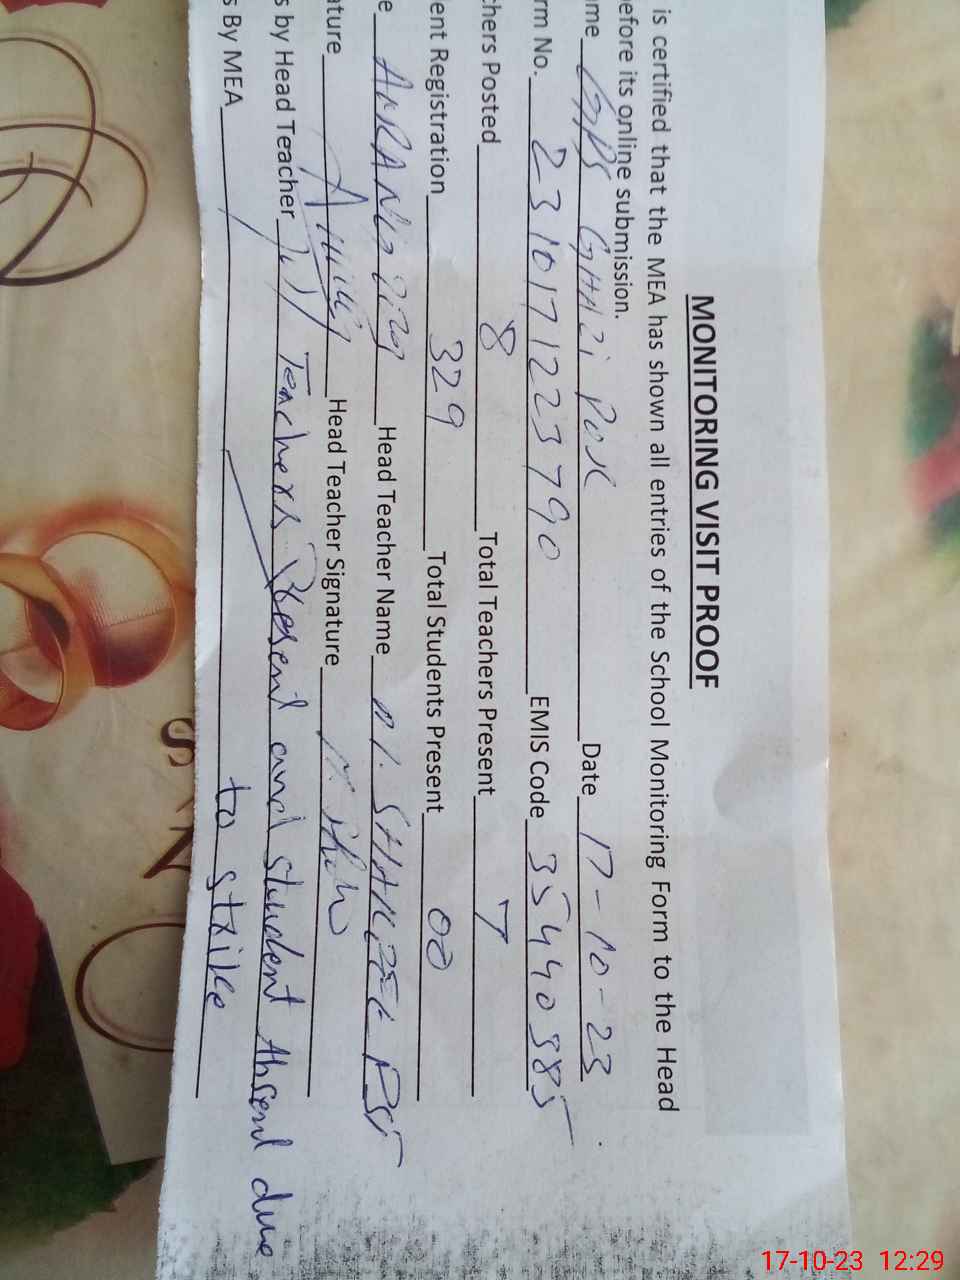 MONITORING VISIT PROOF
is certified that the MEA has shown all entries of the School Monitoring Form to the Head
before its online submission.
ame GPS GHAZI Date 17-10-23
rm No. 2310171223790 EMIS Code 35440385
chers Posted 8 Total Teachers Present 7
ent Registration 329 Total Students Present 00
e Head Teacher Name PST
ature Head Teacher Signature
s by Head Teacher Teachers Present and student Absent due
s By MEA to strike
17-10-23 12:29